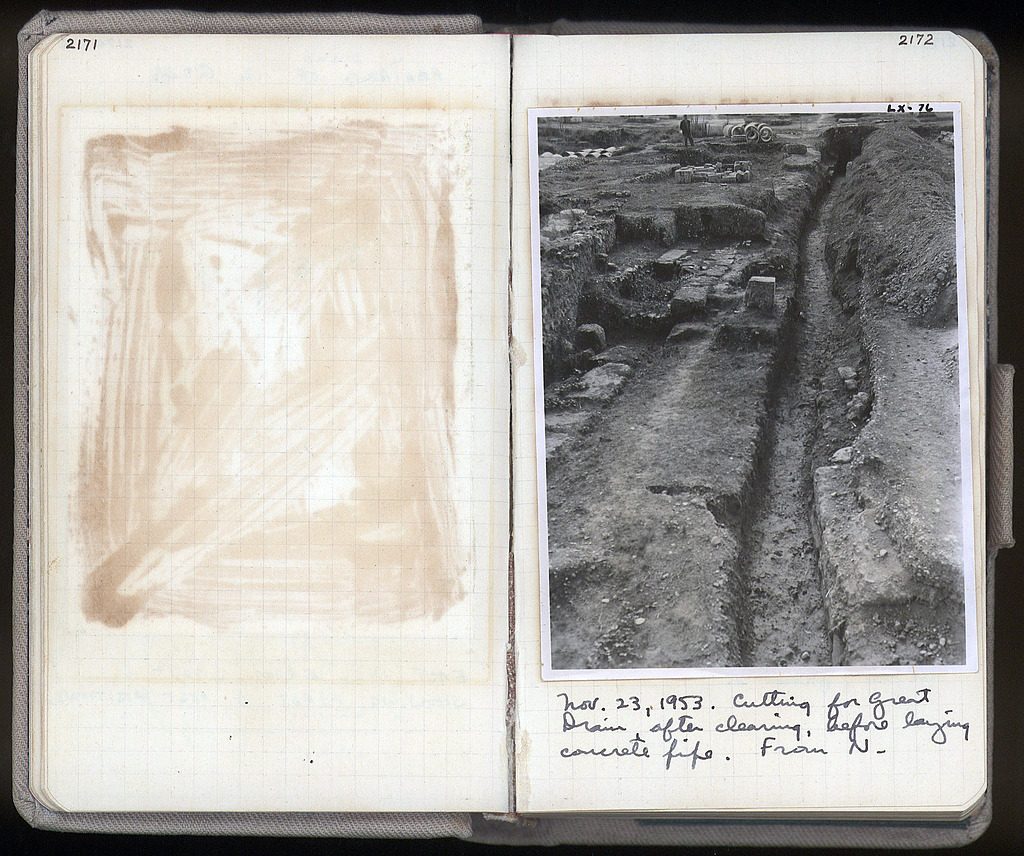 2171
2172
LX-76
Nov. 23, 1953. Cutting for Great
Drain, after clearing, before laying
concrete pipe. From N-